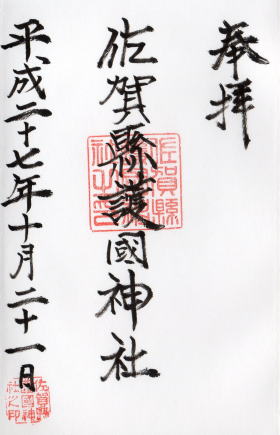 奉拝
佐賀縣護國神社
平成二十七年十月二十一日
佐賀縣護國神社之印
佐賀縣護國神社之印